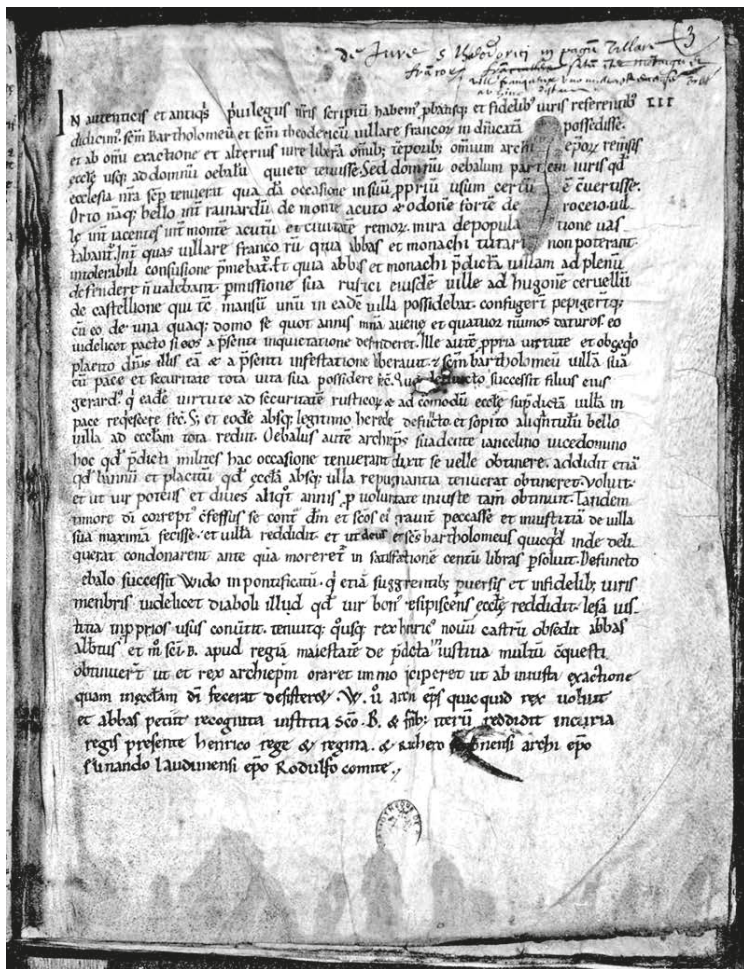 de Jure s Theodorici in pagum Villare
francor
3
III
IN autenticis et antiqis privilegiis nris scriptū habem⁹ pbansq; et fidelib⁹ viris referentib⁹
didicim⁹. scm̄ Bartholomeū et scm̄ theodericū villare francor in dn̄icatā possedisse.
et ab omi exactione et alterius iure liberā omib; tēporib; omnium archi ep̄or remsis
eccłe usq; ad domnū oebalū quiete tenuisse. Sed domnū oebalum partem iuris qd̄
ecclesia nr̄a sēp tenuerat qua dā occasione in suū ppriū usum certū ē cvertisse.
Orto naq; bello int̄ rainardū de monte acuto & odonē forte de roceio. vil
le int̄ iacentes int̄ montē acutū et civitatē remor. mira depopula tione vas
tabant̄. Int̄ quas villare franco rū quia abbas et monachi tutari non poterant.
intolerabili confusione pmebat̄. Et quia abbis et monachi pdictā villam ad plenū
defendere n̄ valebant. pmissione sua rustici eiusdē ville ad hugonē cervellū
de castellione qui tc̄ mansū unū in eadē villa possidebat. confugert̄ pepigert̄q;
cū eo. de una quaq; domo se quot annis minā avene et quatuor nūmos daturos. eo
videlicet pacto si eos a psenti inquietatione defenderet. Ille autē ppria virtute et obseqio
placito dn̄is illis eā & a psenti infestatione liberavit. & scm̄ bartholomeū villā suā
cū pace et securitate tota vita sua possidere fec̄. Quo defuncto successit filius eius
gerard⁹. q̇ eadē virtute ad securitatē rusticor & ad comodū eccłe supdictā villā in
pace reqescere fec̄. S; et eodē absq; legitimo herede defūcto. et sopito aliqntulū bello
villa ad eccłam tota rediit. Oebalus autē archieps suadente iancelino vicedomino
hoc qd̄ pdicti milites hac occasione tenuerant dixit se velle obtinere. addidit etiā
qd̄ bannū et placitū qd̄ eccłā absq; ulla repugnantia tenuerat obtineret. voluit.
et ut vir potens et dives aliqt annis p voluntate iniuste tam̄ obtinuit. Tandem
timore dī corrept⁹ cfessus se cont̄ dm̄ et scos ei⁹ gravit̄ peccasse et iniustitiā de villa
sua maximā fecisse. et villā reddidit. et ut deus et scs bartholomeus quicqd̄ inde deli
querat condonarent ante quā moreret̄ in satisfactione centū libras psoluit. Defuncto
ebalo successit Wido in pontificatū. q̇ etiā suggrentib; pversis et infidelib; viris
menbris videlicet diaboli illud qd̄ vir bon⁹ resipiscens eccłe reddidit. lesa ius
titia in pprios usus convtit. tenuitq; qusq; rex henric⁹ novū castrū obsedit. abbas
albtus et m̄ scī B. apud regiā maiestatē de pdicta iustitia multū cquesti
obtinuert̄ ut et rex archiepm oraret immo pciperet ut ab iniusta exactione
quam in eccłam dī fecerat desisteret. W. v̊ arch eps quicquid rex voluit
et abbas petiit recognita iustitia sco. B. & frib; iterū reddidit in curia
regis presente henrico rege & regina. & Richero senonensi archi epo
sunando laudunensi epo Rodulfo comite.